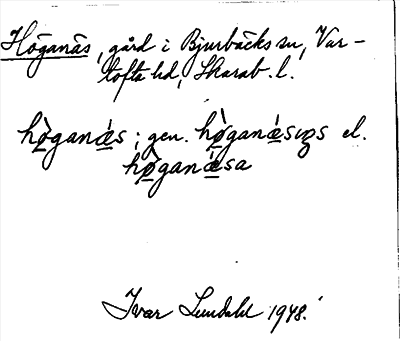 Höganäs, gård i Bjurbäcks sn, Var-
tofta hd, Skarab. l.
hò̱ganä́s; gen. hò̱ganä́sıǥs el.
hò̱ganǽsa
Ivar Lundahl 1948.